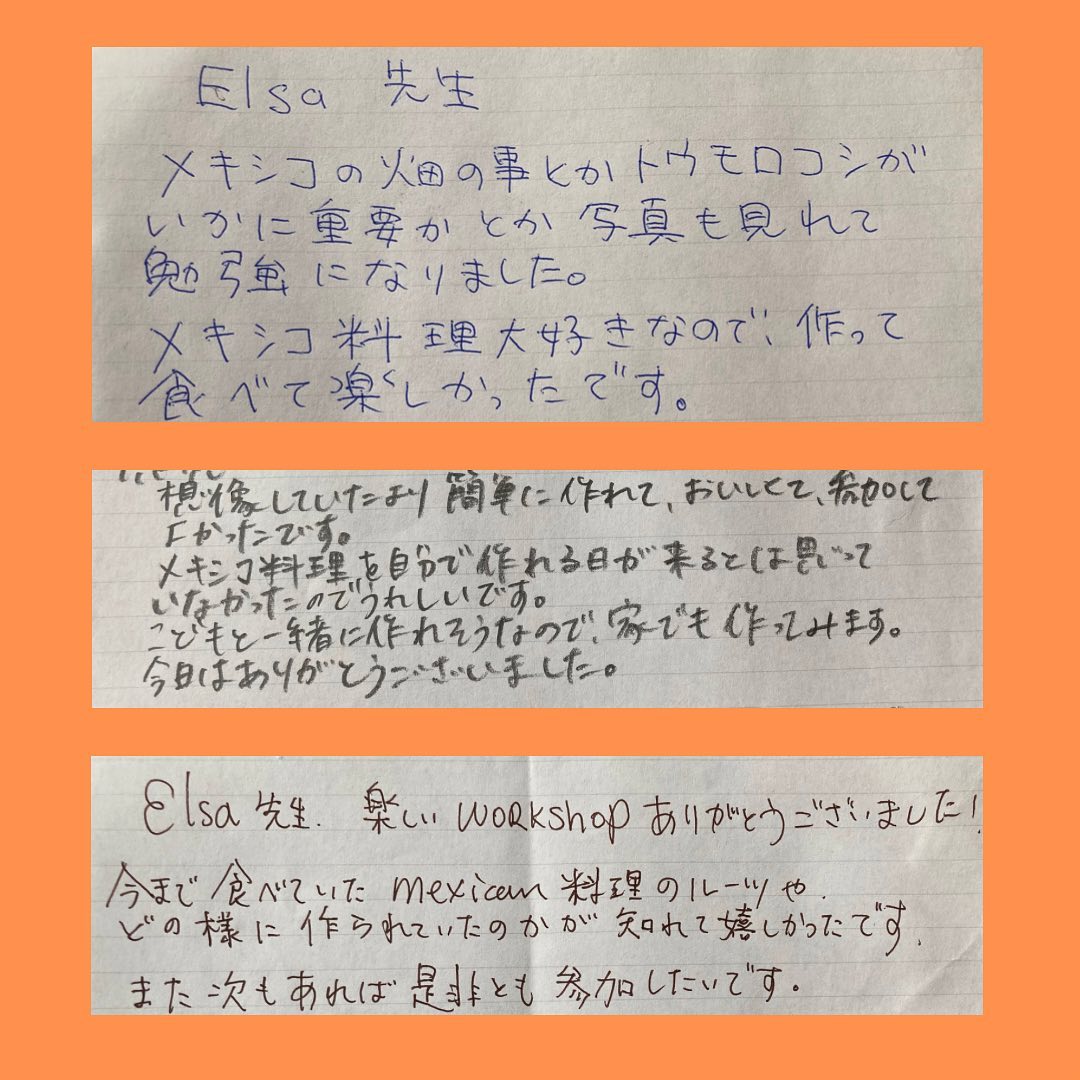 Elsa 先生
メキシコの畑の事とかトウモロコシが
いかに重要かとか写真も見れて
勉強になりました。
メキシコ料理大好きなので、作って
食べて楽しかったです。
想像していたより簡単に作れて、おいしくて、参加して
よかったです。
メキシコ料理を自分で作れる日が来るとは思って
いなかったのでうれしいです。
こどもと一緒に作れそうなので、家でも作ってみます。
今日はありがとうございました。
Elsa 先生. 楽しい workshop ありがとうございました!
今まで食べていた mexican 料理のルーツや
どの様に作られていたのかが知れて嬉しかったです.
また次もあれば是非とも参加したいです.